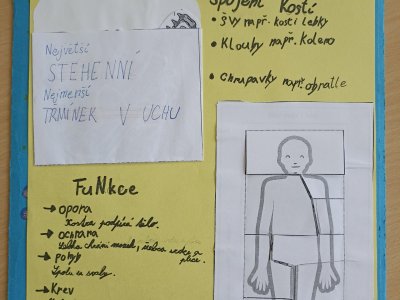 Spojení kostí
• Švy např. kosti lebky
• Klouby např. koleno
• Chrupavky např. obratle
Největší
STEHENNÍ
Nejmenší
TŘMÍNEK V UCHU
FuNkce
→ opora
Kostra podpírá tělo.
→ ochrana
Lebka chrání mozek, žebra srdce a plíce.
→ pohyb
Spolu se svaly.
→ Krev